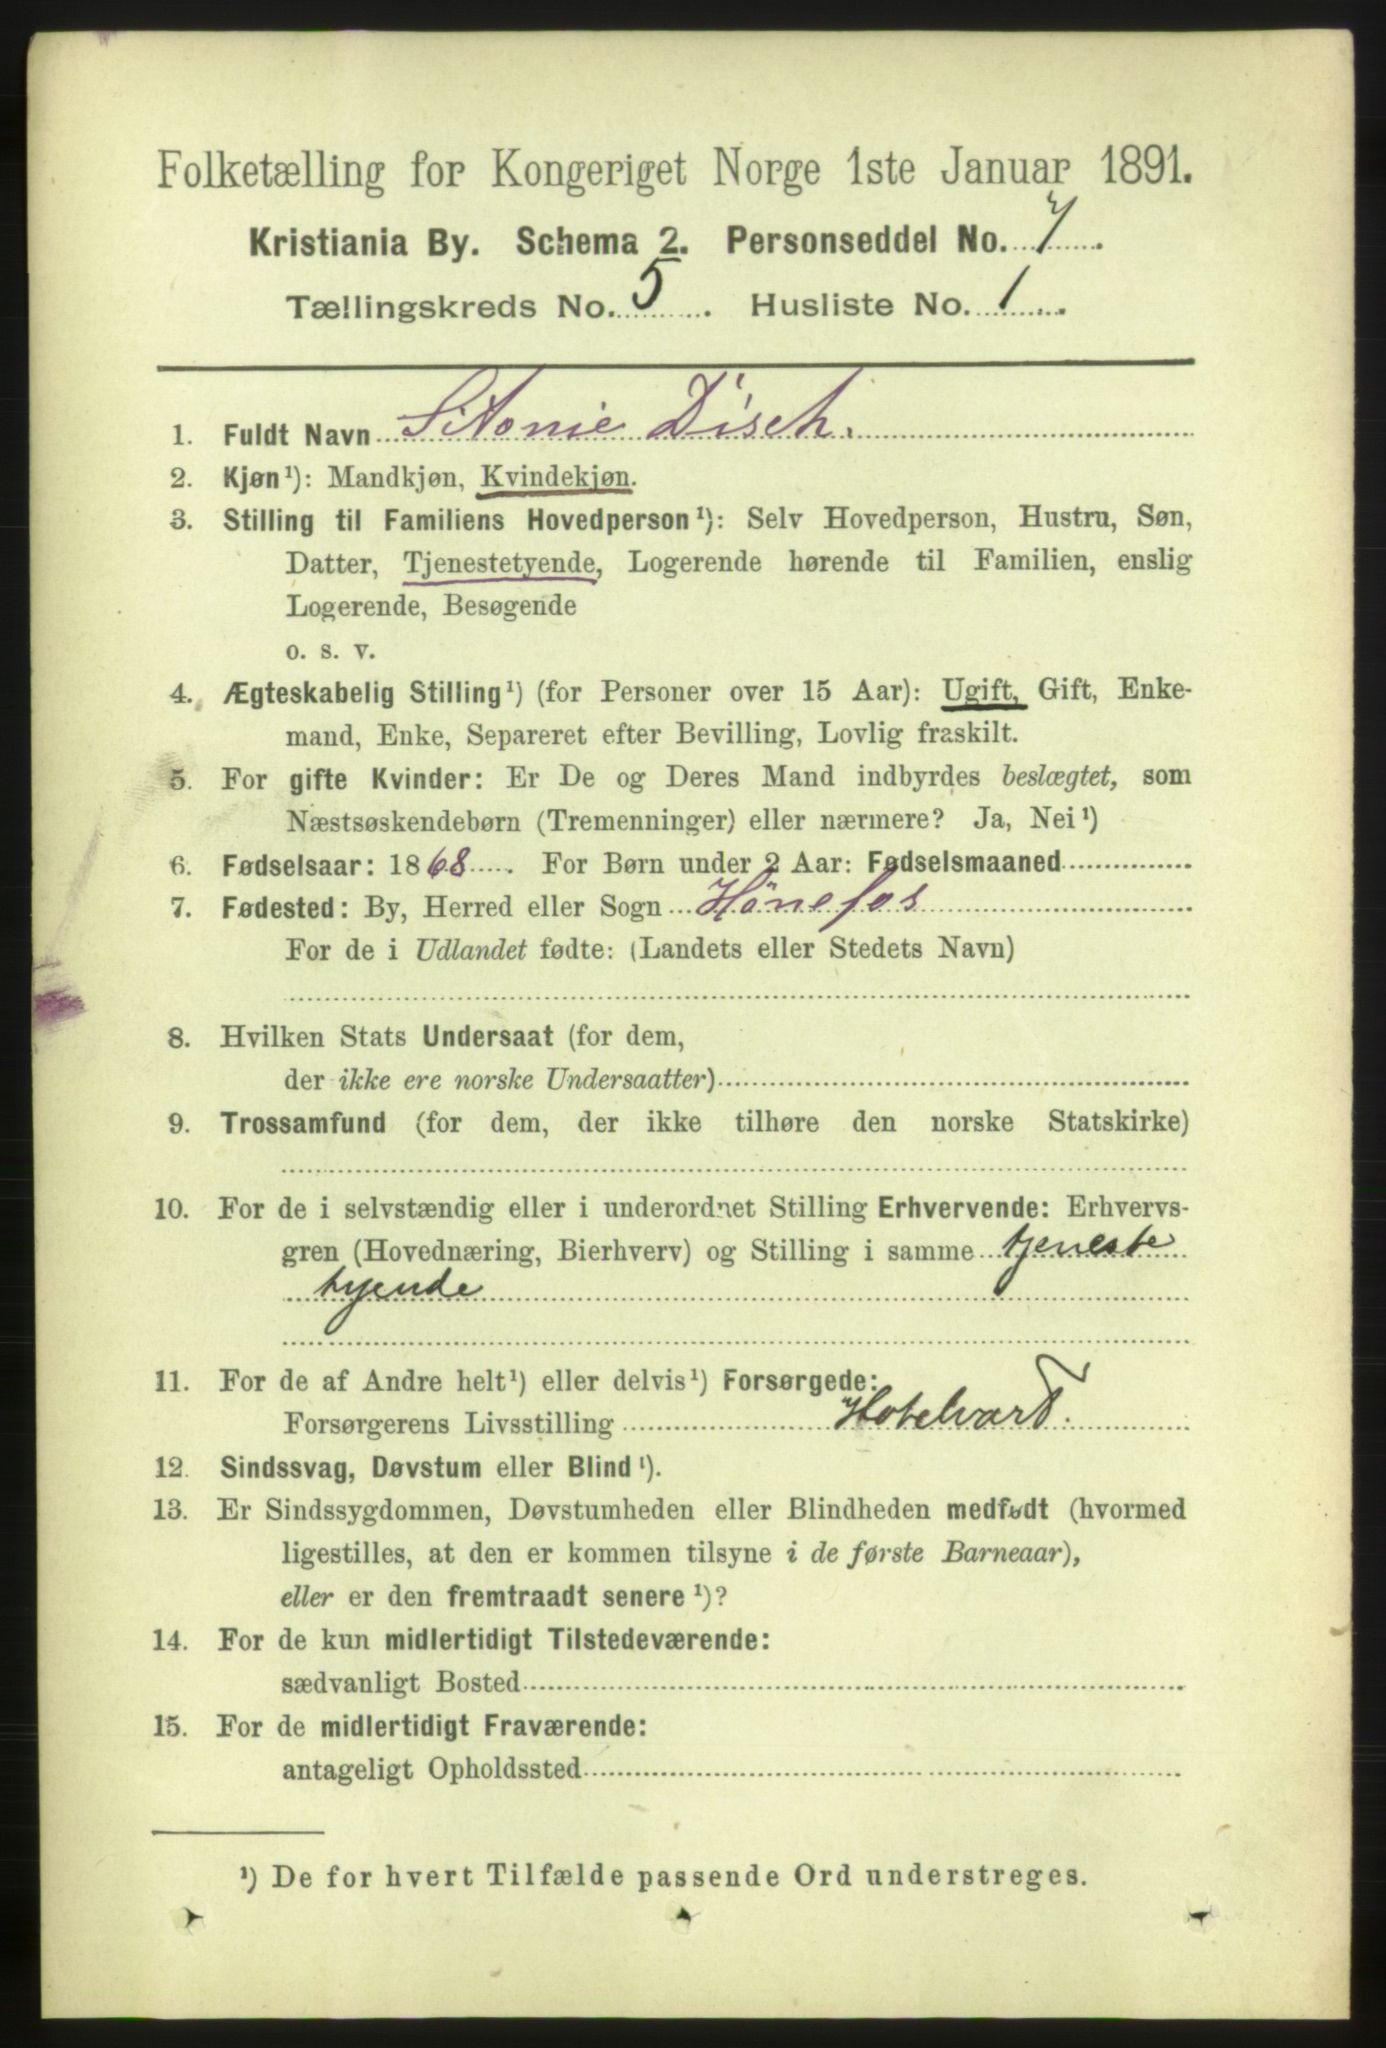 Folketælling for Kongeriget Norge 1ste Januar 1891.
Kristiania By. Schema 2. Personseddel No. 7.
Tællingskreds No. 5. Husliste No. 1.
1. Fuldt Navn Sitonie Disch.
2. Kjøn¹): Mandkjøn, Kvindekjøn.
3. Stilling til Familiens Hovedperson¹): Selv Hovedperson, Hustru, Søn,
Datter, Tjenestetyende, Logerende hørende til Familien, enslig
Logerende, Besøgende
o. s. v.
4. Ægteskabelig Stilling¹) (for Personer over 15 Aar): Ugift, Gift, Enke-
mand, Enke, Separeret efter Bevilling, Lovlig fraskilt.
5. For gifte Kvinder: Er De og Deres Mand indbyrdes beslægtet, som
Næstsøskendebørn (Tremenninger) eller nærmere? Ja, Nei¹)
6. Fødselsaar: 1868. For Børn under 2 Aar: Fødselsmaaned
7. Fødested: By, Herred eller Sogn Hönefos
For de i Udlandet fødte: (Landets eller Stedets Navn)
8. Hvilken Stats Undersaat (for dem,
der ikke ere norske Undersaatter)
9. Trossamfund (for dem, der ikke tilhøre den norske Statskirke)
10. For de i selvstændig eller i underordnet Stilling Erhvervende: Erhvervs-
gren (Hovednæring, Bierhverv) og Stilling i samme tjeneste
tyende
11. For de af Andre helt¹) eller delvis¹) Forsørgede:
Forsørgerens Livsstilling Hotelvært.
12. Sindssvag, Døvstum eller Blind¹).
13. Er Sindssygdommen, Døvstumheden eller Blindheden medfødt (hvormed
ligestilles, at den er kommen tilsyne i de første Barneaar),
eller er den fremtraadt senere¹)?
14. For de kun midlertidigt Tilstedeværende:
sædvanligt Bosted
15. For de midlertidigt Fraværende:
antageligt Opholdssted
¹) De for hvert Tilfælde passende Ord understreges.